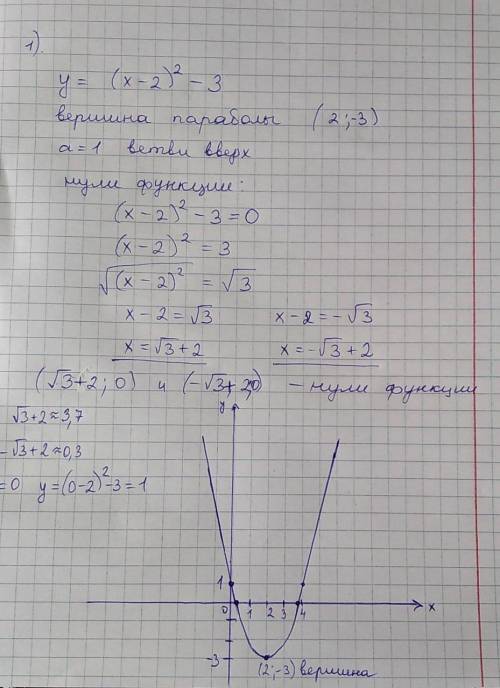 1).
y = (x-2)² - 3
вершина параболы (2;-3)
a=1 ветви вверх
нули функции:
(x-2)² - 3 = 0
(x-2)² = 3
√(x-2)² = √3
x-2 = √3 x-2 = -√3
x = √3+2 x = -√3+2
(√3+2; 0) и (-√3+2;0) - нули функции
√3+2≈3,7
-√3+2≈0,3
=0 y=(0-2)²-3=1
y
1
0 1 2 3 4 x
-3
(2;-3) вершина